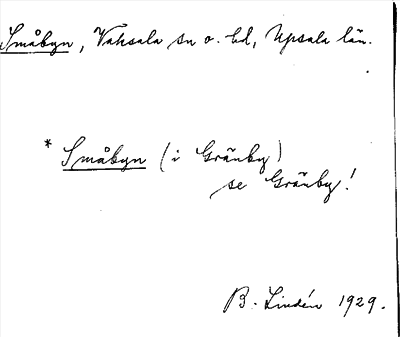 Småbyn, Vaksala sn o. hd, Upsala län.
* Småbyn (i Gränby)
se Gränby!
B. Lindén 1929.